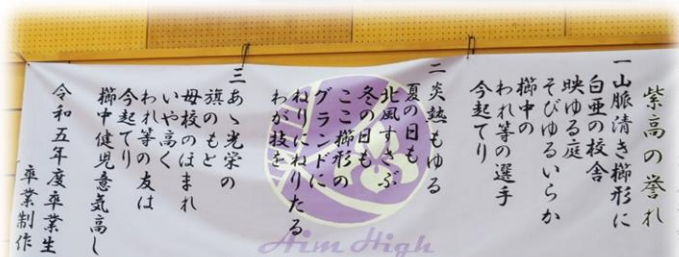 紫高の誉れ
一山脈清き櫛形に
白亜の校舎
映ゆる庭
そびゆるいらか
櫛中の
われ等の選手
今起てり
二炎熱もゆる
夏の日も
北風すさぶ
冬の日も
ここ櫛形の
グランドに
ねりにねりたる
わが技を
三あゝ光栄の
旗のもと
母校のほまれ
いや高く
われ等の友は
今起てり
櫛中健児意気高し
令和五年度卒業生
卒業制作
Aim High